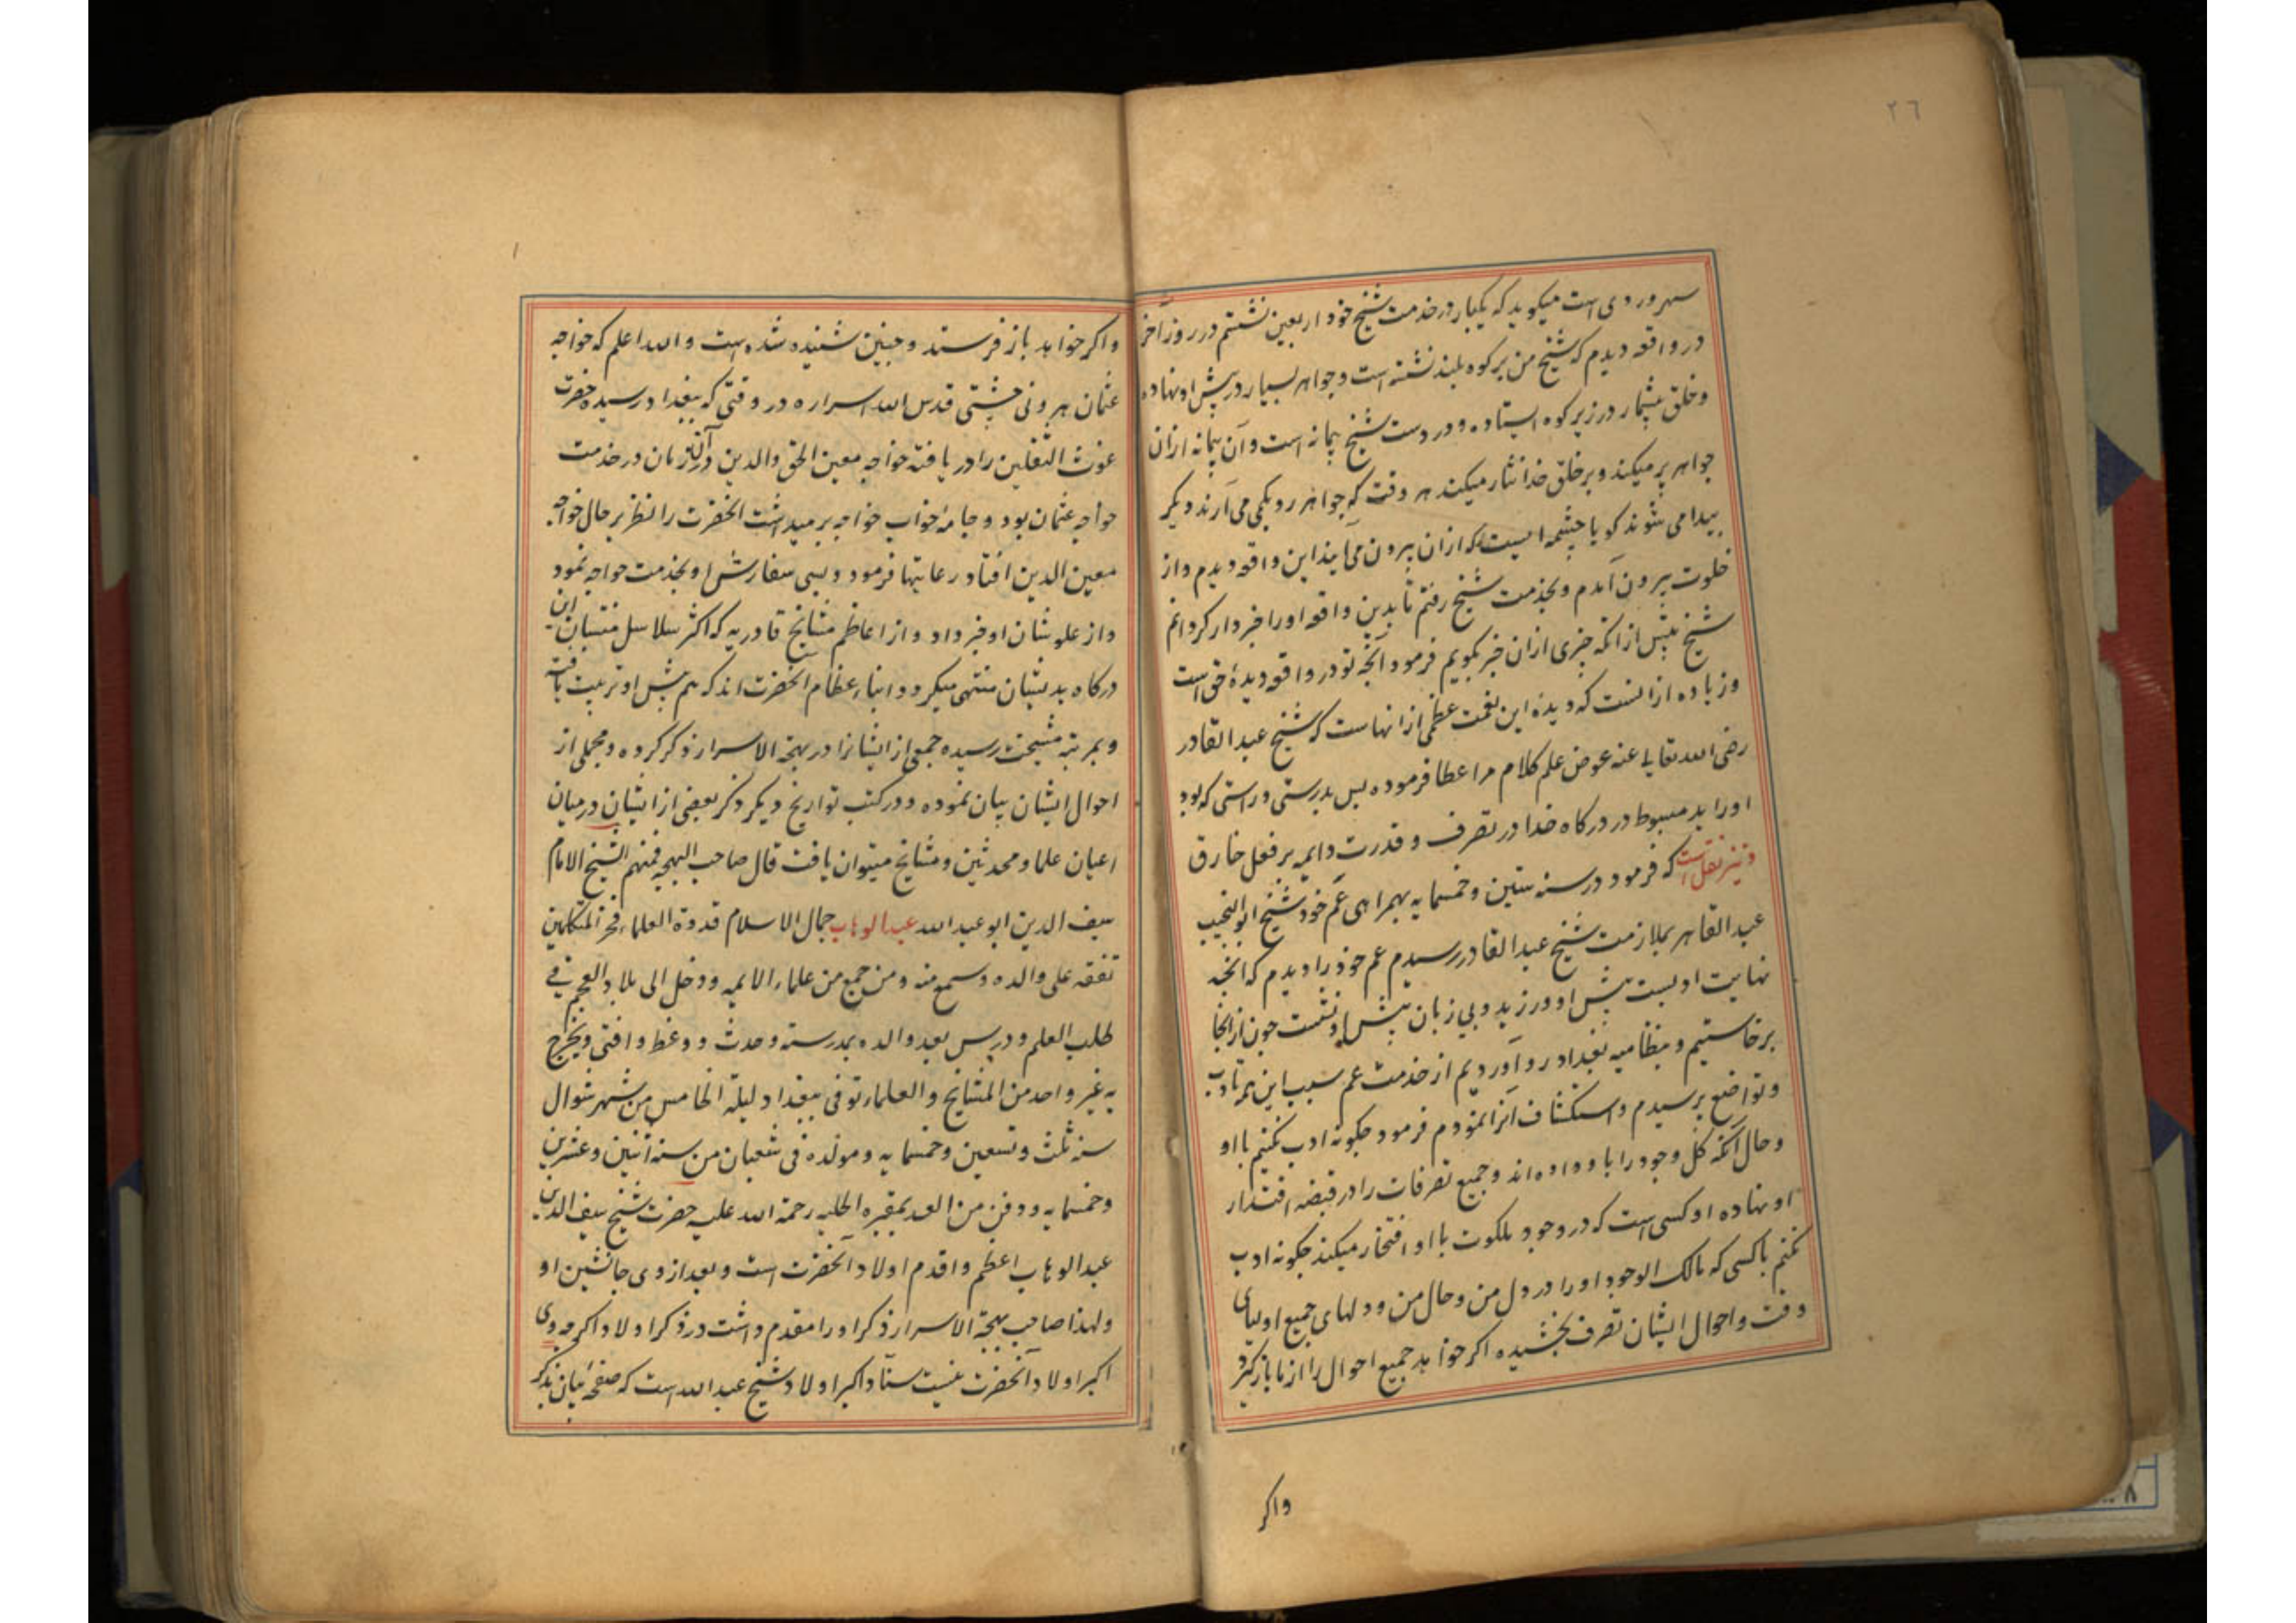 ٢٦
سهروردی است میکوید که یکبار در خدمت شیخ خود اربعین نشستم در روز آخر
در واقعه دیدم که شیخ من بر کوه بلند نشسته است و جواهر بسیار در پیش او نهاده
و خلق بیشمار در زیر کوه ایستاده و در دست شیخ پیمانه است و آن پیمانه ازان
جواهر پر میکند و بر خلق خدا نثار میکند هر وقت که جواهر رو بکمی می آرند دیکر
پیدا می شوند کویا چشمه ایست که ازان بیرون می آیند این واقعه دیدم و از
خلوت بیرون آمدم و بخدمت شیخ رفتم تا بدین واقعه او را خبردار کردانم
شیخ پیش از انکه چیزی ازان خبر بکویم فرمود آنچه تو در واقعه دیدهٔ حق است
و زیاده ازانست که دیدهٔ این نعمت عظمی ازانهاست که شیخ عبد القادر
رضی الله تعالی عنه عوض علم کلام مرا عطا فرموده پس بدرستی و راستی که بود
او را ید مبسوط در درکاه خدا در تصرف و قدرت دایم بر فعل خارق
و نیز نقل است که فرمود در سنه ستین و خمسمایه بهمراهی عم خود شیخ ابو النجیب
عبد القاهر بملازمت شیخ عبد القادر رسیدم عم خود را دیدم که آنچه
نهایت ادبست پیش او ورزید و بی زبان پیش او نشست چون ازانجا
برخاستیم و بنظامیه بغداد رو آوردیم از خدمت عم سبب این همه تادب
و تواضع پرسیدم و استکشاف آنرا نمودم فرمود چکونه ادب نکنیم با او
و حال آنکه کل وجود را با و داده اند و جمیع تصرفات را در قبضه اقتدار
او نهاده او کسی است که در وجود ملکوت با او افتخار میکند چکونه ادب
نکنم با کسی که مالک الوجود او را در دل من و حال من و دلهای جمیع اولیای
وقت و احوال ایشان تصرف بخشیده اکر خواهد جمیع احوال را از ما باز کیرد
واکر
و اکر خواهد باز فرستد و چنین شنیده شده است و الله اعلم که خواجه
عثمان هرونی چشتی قدس الله اسراره در وقتی که ببغداد رسیده حضرت
غوث الثقلین را دریافته خواجه معین الحق والدین دران زمان در خدمت
خواجه عثمان بود و جامهٔ خواب خواجه بر میداشت آنحضرت را نظر بر حال خواجه
معین الدین افتاد رعایتها فرمود و بسی سفارش او بخدمت خواجه نمود
و از علو شان او خبر داد و از اعاظم مشایخ قادریه که اکثر سلاسل منتسبان این
درکاه بدیشان منتهی میکردد ابناء عظام آنحضرت اند که هم پیش او تربیت یافته
و بمرتبه مشیخت رسیده جمعی از ایشانرا در بهجة الاسرار ذکر کرده و مجملی از
احوال ایشان بیان نموده و در کتب تواریخ دیکر ذکر بعضی از ایشان در میان
اعیان علما و محدثین و مشایخ میتوان یافت قال صاحب البهجه فمنهم الشیخ الامام
سیف الدین ابو عبد الله عبد الوهاب جمال الاسلام قدوة العلماء فخر المتکلمین
تفقه علی والده و سمع منه و من جمع من علماء الایمه و دخل الی بلاد العجم فی
طلب العلم و درس بعد والده بمدرسته و حدث و وعظ و افتی و تخرج
به غیر واحد من المشایخ و العلماء توفی ببغداد لیلة الخامس من شهر شوال
سنه ثلث و تسعین و خمسمایه و مولده فی شعبان من سنه اثنین و عشرین
و خمسمایه و دفن من الغد بمقبره الحلبه رحمة الله علیه حضرت شیخ سیف الدین
عبد الوهاب اعظم و اقدم اولاد آنحضرت است و بعد از وی جانشین او
و لهذا صاحب بهجة الاسرار ذکر او را مقدم داشت در ذکر اولاد اکرچه وی
اکبر اولاد آنحضرت نیست سنّا و اکبر اولاد شیخ عبد الله است که